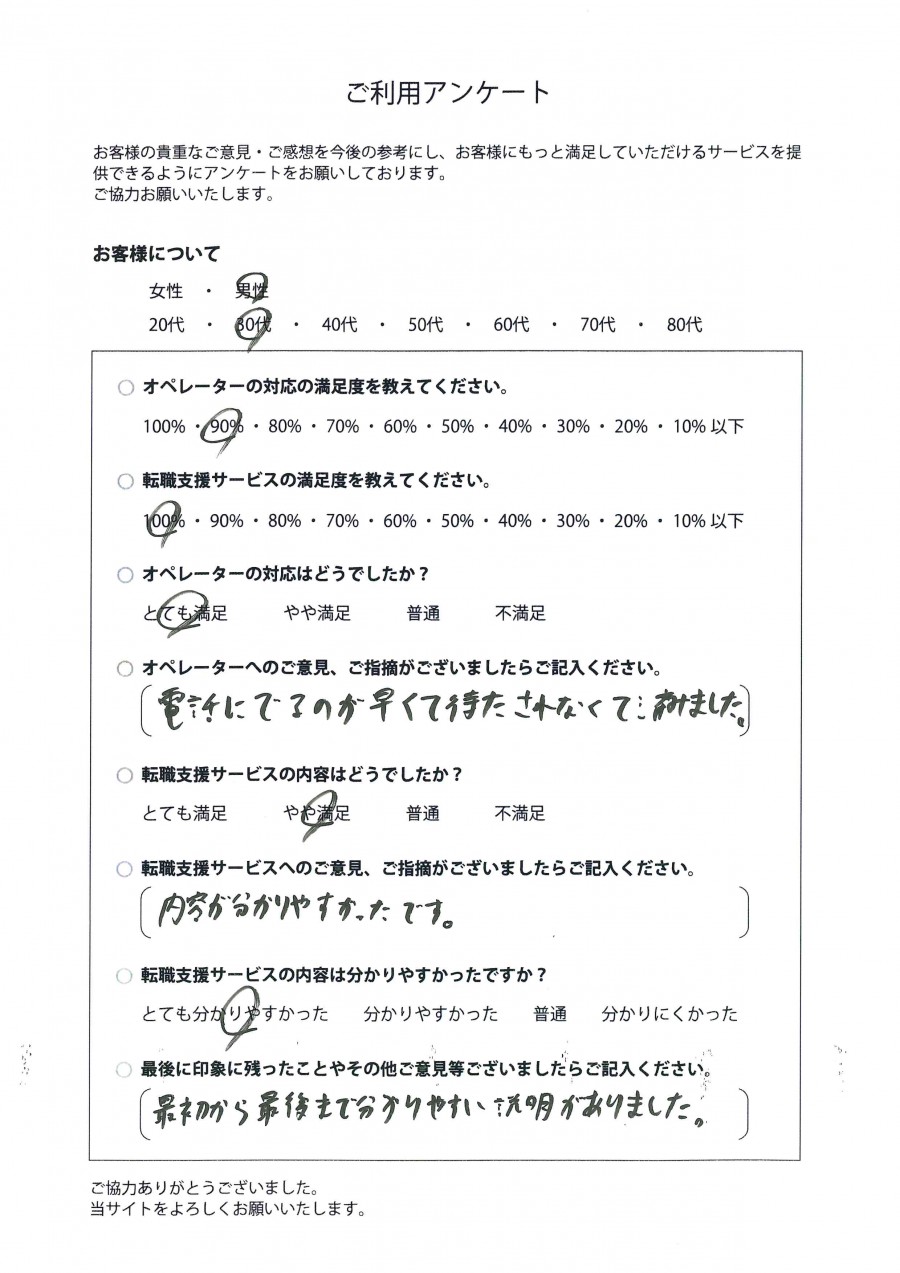 ご利用アンケート
お客様の貴重なご意見・ご感想を今後の参考にし、お客様にもっと満足していただけるサービスを提
供できるようにアンケートをお願いしております。
ご協力お願いいたします。
お客様について
女性 ・ 男性
20代 ・ 30代 ・ 40代 ・ 50代 ・ 60代 ・ 70代 ・ 80代
○ オペレーターの対応の満足度を教えてください。
100% ・ 90% ・ 80% ・ 70% ・ 60% ・ 50% ・ 40% ・ 30% ・ 20% ・ 10% 以下
○ 転職支援サービスの満足度を教えてください。
100% ・ 90% ・ 80% ・ 70% ・ 60% ・ 50% ・ 40% ・ 30% ・ 20% ・ 10% 以下
○ オペレーターの対応はどうでしたか？
とても満足 やや満足 普通 不満足
○ オペレーターへのご意見、ご指摘がございましたらご記入ください。
電話にでるのが早くて待たされなくて済みました。
○ 転職支援サービスの内容はどうでしたか？
とても満足 やや満足 普通 不満足
○ 転職支援サービスへのご意見、ご指摘がございましたらご記入ください。
内容が分かりやすかったです。
○ 転職支援サービスの内容は分かりやすかったですか？
とても分かりやすかった 分かりやすかった 普通 分かりにくかった
○ 最後に印象に残ったことやその他ご意見等ございましたらご記入ください。
最初から最後まで分かりやすい説明がありました。
ご協力ありがとうございました。
当サイトをよろしくお願いいたします。